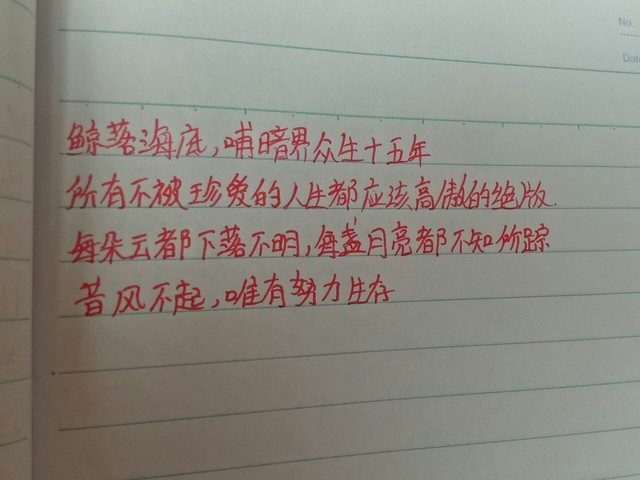 No.
Date
鲸落海底,哺暗界众生十五年
所有不被珍爱的人生都应该高傲的绝版.
每朵云都下落不明,每盏月亮都不知所踪
昔风不起,唯有努力生存